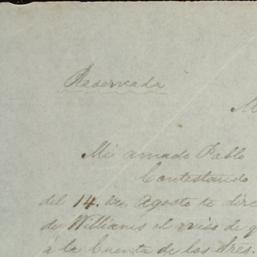 Reservada
M
Mi amado Pablo
Contestando
del 14. de Agosto te dire
de Williams el mes de q
á la Cuenta de los Sres.